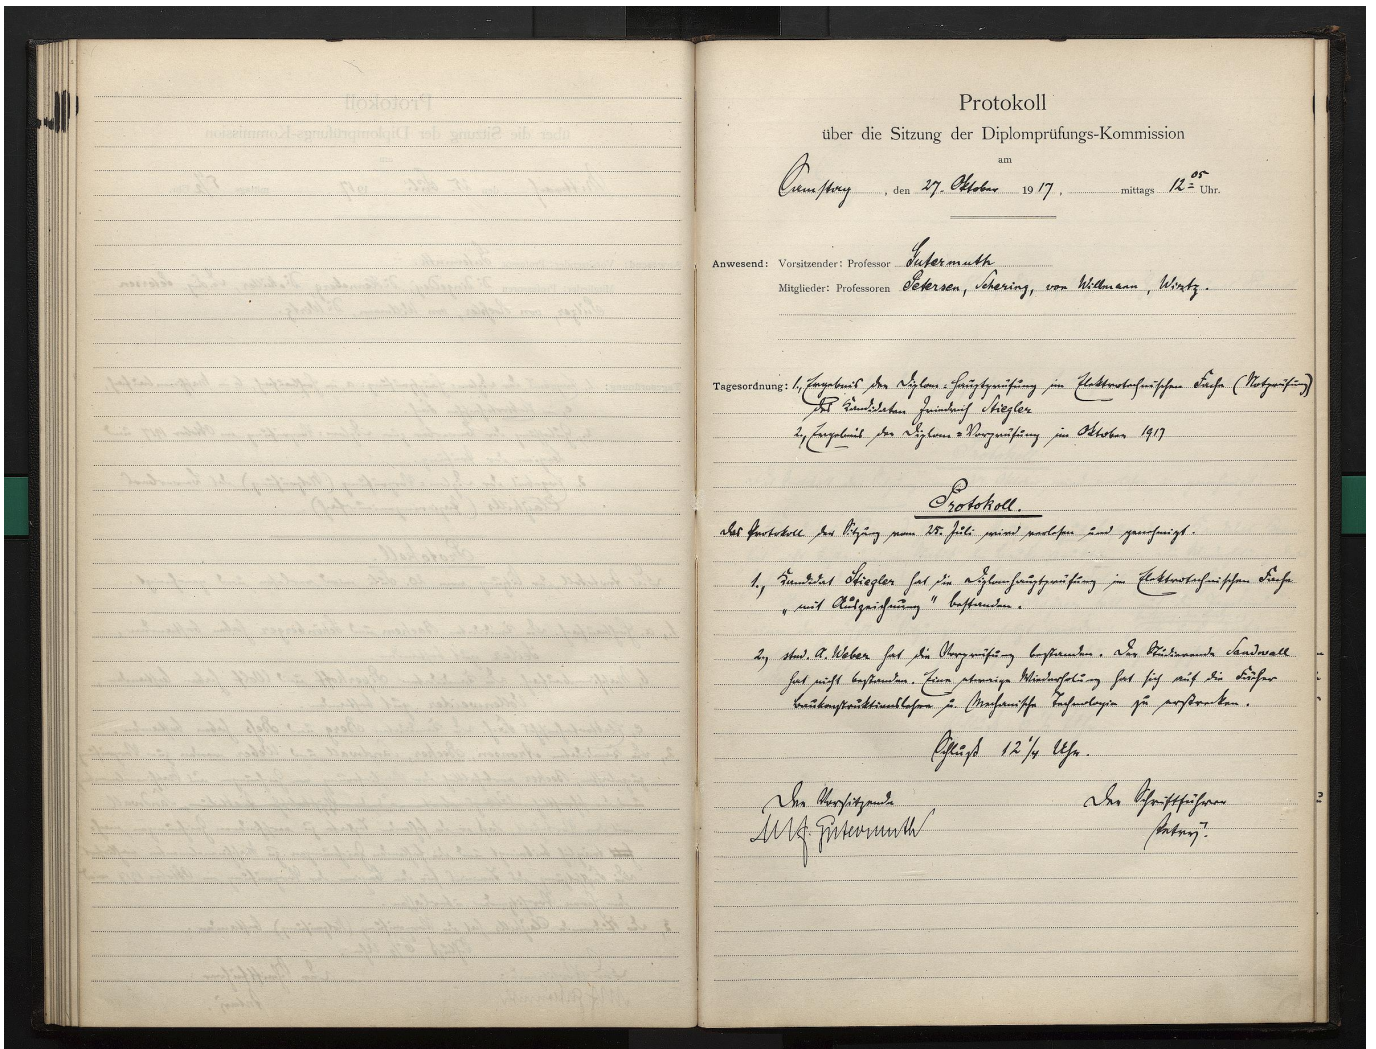 Protokoll
über die Sitzung der Diplomprüfungs-Kommission
am
Samstag, den 27. Oktober 1917, mittags 12 05 Uhr.
Anwesend: Vorsitzender: Professor Gutermuth
Mitglieder: Professoren Petersen, Schering, von Willmann, Wirtz.
Tagesordnung: 1., Ergebnis der Diplom-Hauptprüfung im Elektrotechnischen Fache (Notprüfung)
des Kandidaten Friedrich Stiegler
2., Ergebnis der Diplom-Vorprüfung im Oktober 1917
Protokoll.
Das Protokoll der Sitzung vom 25. Juli wird verlesen und genehmigt.
1., Kandidat Stiegler hat die Diplomhauptprüfung im Elektrotechnischen Fache
„mit Auszeichnung" bestanden.
2., stud. A. Weber hat die Vorprüfung bestanden. Der Studierende Sandwall
hat nicht bestanden. Eine etwaige Wiederholung hat sich auf die Fächer
Baukonstruktionslehre u. Mechanische Technologie zu erstrecken.
Schluß 12 1/4 Uhr.
Der Vorsitzende Der Schriftführer
Gutermuth Petry.